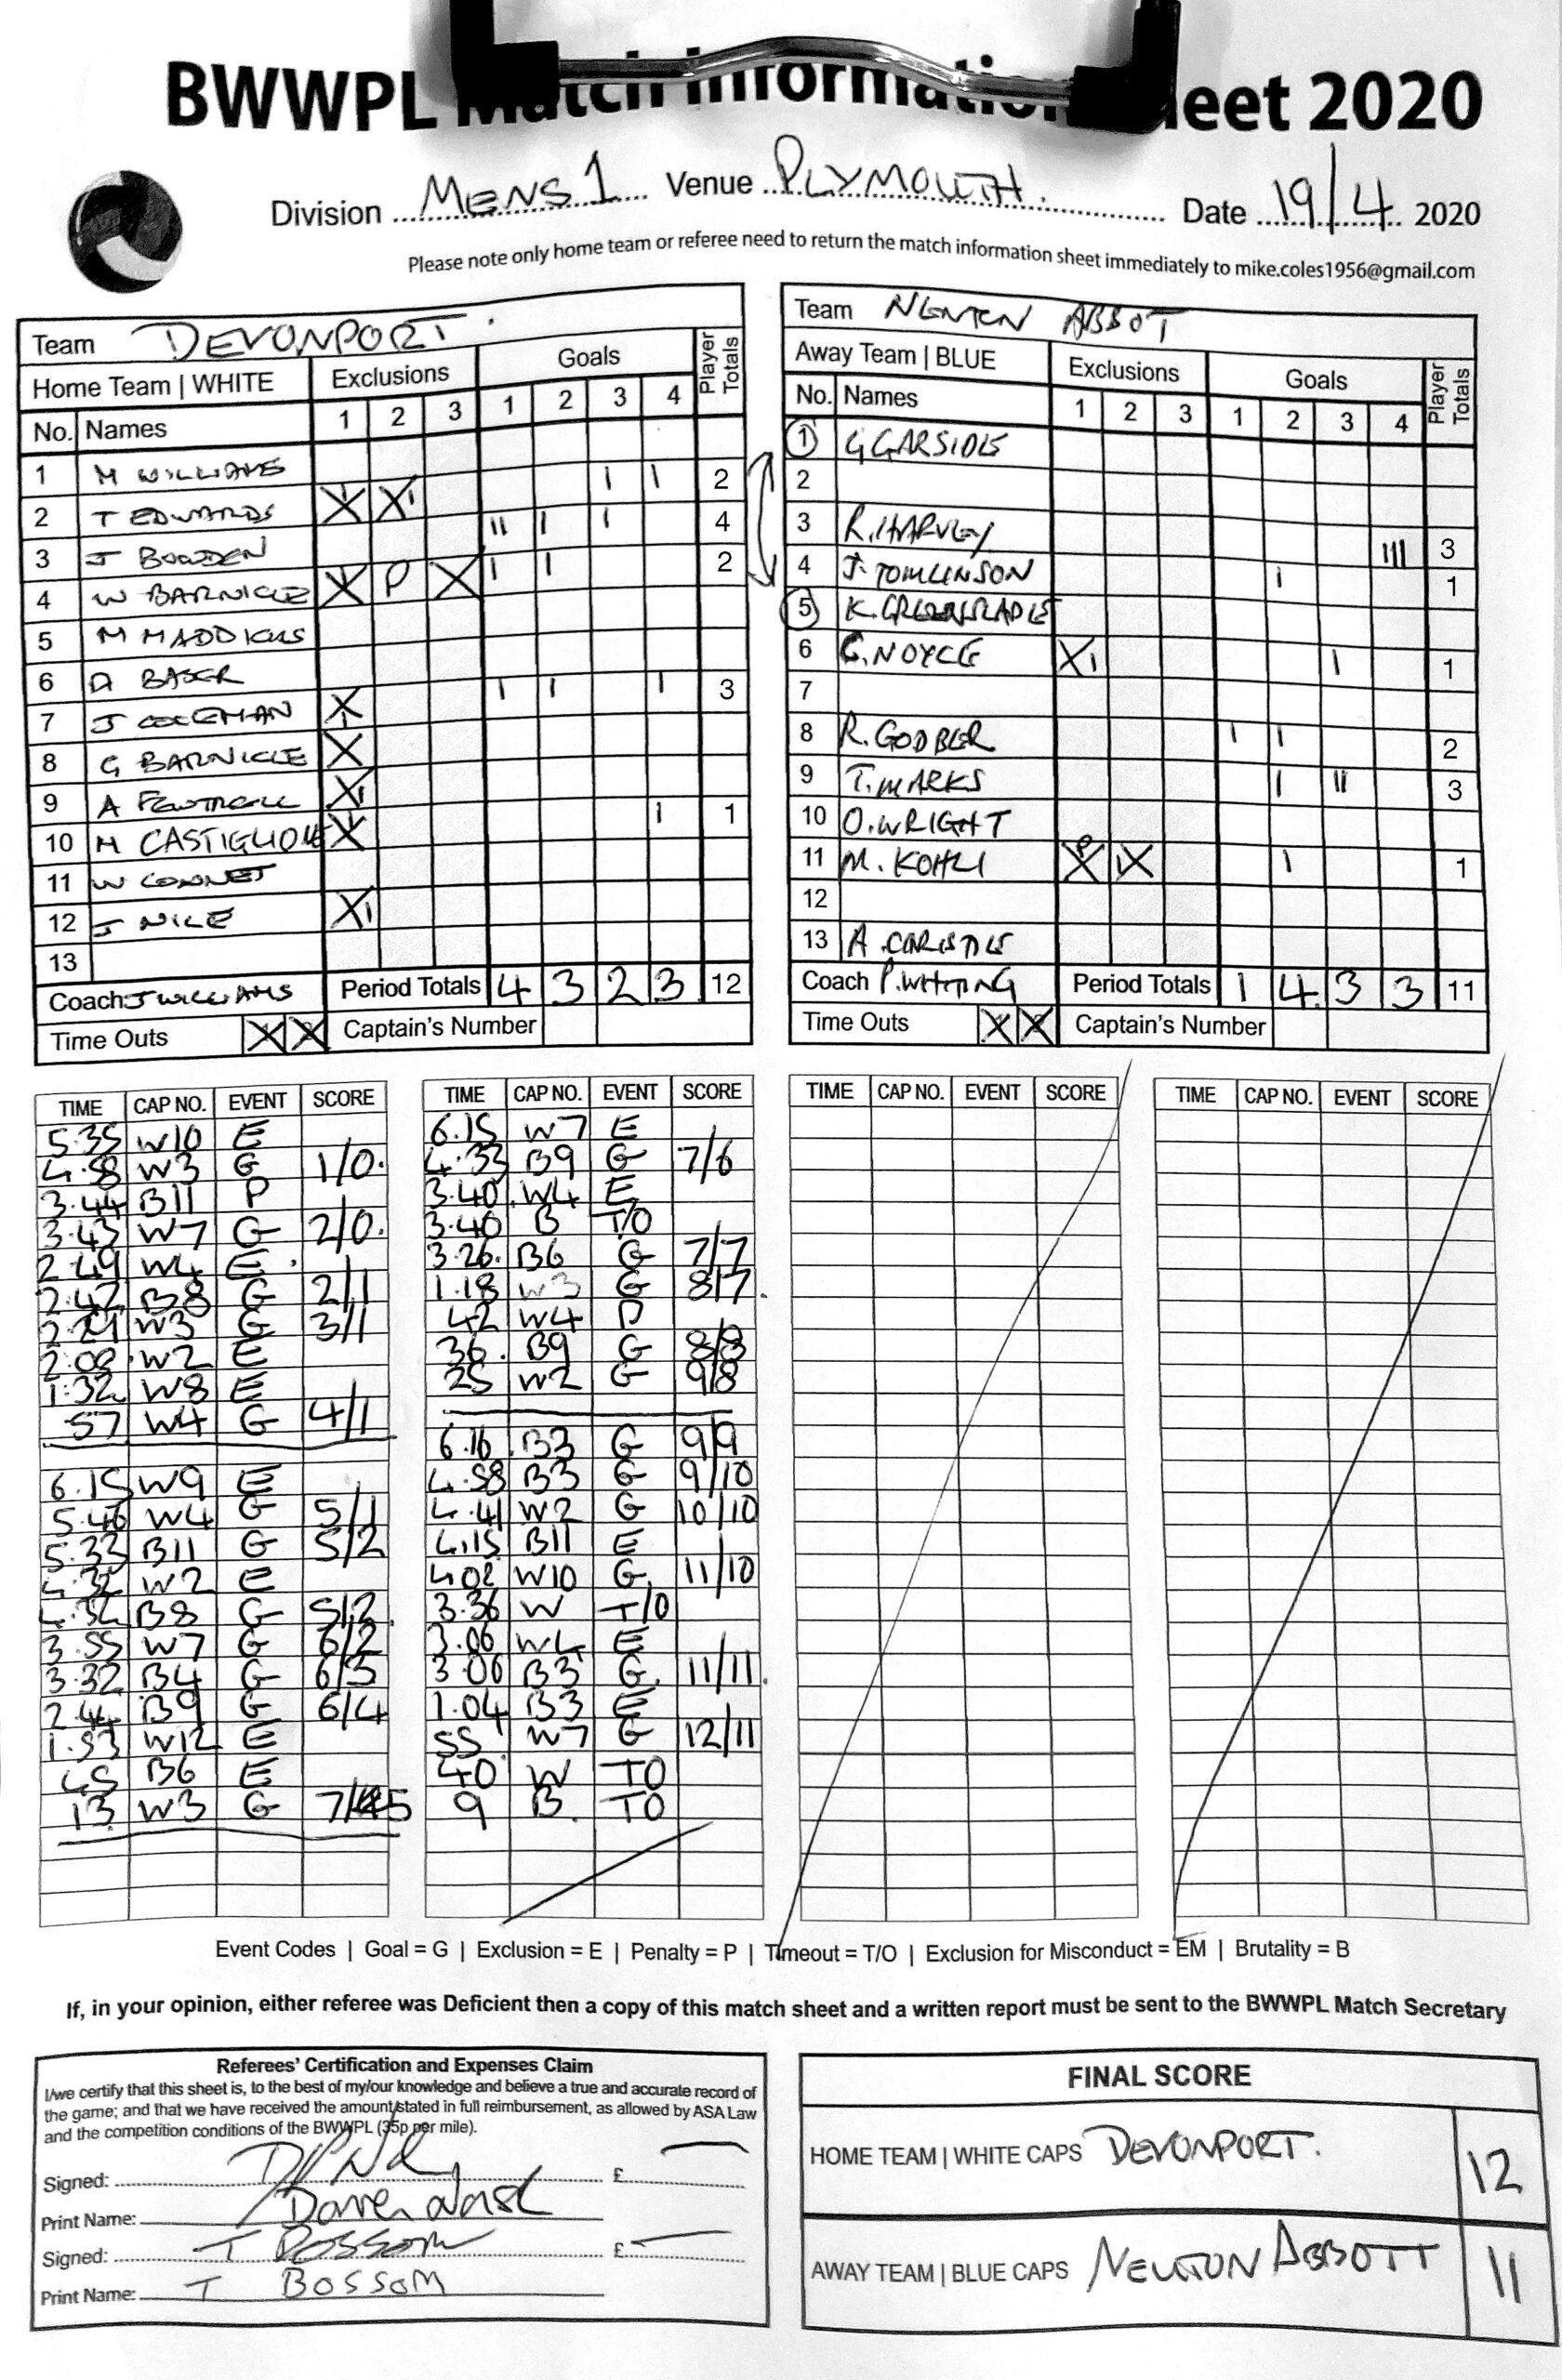 BWWPL Match Information Sheet 2020
Division MENS 1 Venue PLYMOUTH. Date 19/4 2020
Please note only home team or referee need to return the match information sheet immediately to mike.coles1956@gmail.com
Team DEVONPORT
Home Team | WHITE Exclusions Goals Player Totals
No. Names 1 2 3 1 2 3 4
1 M WILLIAMS
2 T EDWARDS X X I I 2
3 J BOWDEN II I I 4
4 W BARNICLE X P X I I 2
5 M MADDICKS
6 D BAKER
7 J COLEMAN X I I I 3
8 G BARNICLE X
9 A X
10 M CASTIGLIONE X I 1
11 W
12 J NICE X
13
Coach J WILLIAMS Period Totals 4 3 2 3 12
Time Outs X X Captain's Number
Team NEWTON ABBOT
Away Team | BLUE Exclusions Goals Player Totals
No. Names 1 2 3 1 2 3 4
1 G GARSIDE
2
3 R. HARVEY III 3
4 J. TOMLINSON I 1
5 K. GREENSLADE
6 C. NOYCE X I 1
7
8 R. GODBER I I 2
9 T. MARKS I II 3
10 O. WRIGHT
11 M. KOHLI P X X I 1
12
13 A.
Coach P. WHITING Period Totals 1 4 3 3 11
Time Outs X X Captain's Number
TIME CAP NO. EVENT SCORE
5.35 W10 E
4.58 W3 G 1/0.
3.44 B11 P
3.43 W7 G 2/0.
2.49 W4 E
2.42 B8 G 2/1
2.21 W3 G 3/1
2.08 W2 E
1.32 W8 E
57 W4 G 4/1
6.15 W9 E
5.46 W4 G 5/1
5.33 B11 G 5/2
4.32 W2 E
B8 G
3.55 W7 G 6/2
3.32 B4 G 6/3
2.44 B9 G 6/4
1.53 W12 E
45 B6 E
13 W3 G 7/5
TIME CAP NO. EVENT SCORE
6.15 W7 E
4.33 B9 G 7/6
3.40 W4 E
3.40 B T/O
3.26. B6 G 7/7
1.18 W3 G 8/7.
42 W4 P
36. B9 G 8/8
25 W2 G 9/8
6.16 B3 G 9/9
4.58 B3 G 9/10
4.41 W2 G 10/10
4.15 B11 E
4.02 W10 G. 11/10
3.36 W T/O
3.06 W4 E
3.06 B3 G. 11/11.
1.04 B3 E
55 W7 G 12/11
40 W TO
9 B. TO
TIME CAP NO. EVENT SCORE
TIME CAP NO. EVENT SCORE
Event Codes | Goal = G | Exclusion = E | Penalty = P | Timeout = T/O | Exclusion for Misconduct = EM | Brutality = B
If, in your opinion, either referee was Deficient then a copy of this match sheet and a written report must be sent to the BWWPL Match Secretary
Referees' Certification and Expenses Claim
I/we certify that this sheet is, to the best of my/our knowledge and believe a true and accurate record of
the game; and that we have received the amount stated in full reimbursement, as allowed by ASA Law
and the competition conditions of the BWWPL (35p per mile).
Signed: £
Print Name: Nash
Signed: T Bossom £
Print Name: T BOSSOM
FINAL SCORE
HOME TEAM | WHITE CAPS DEVONPORT. 12
AWAY TEAM | BLUE CAPS NEWTON ABBOTT 11